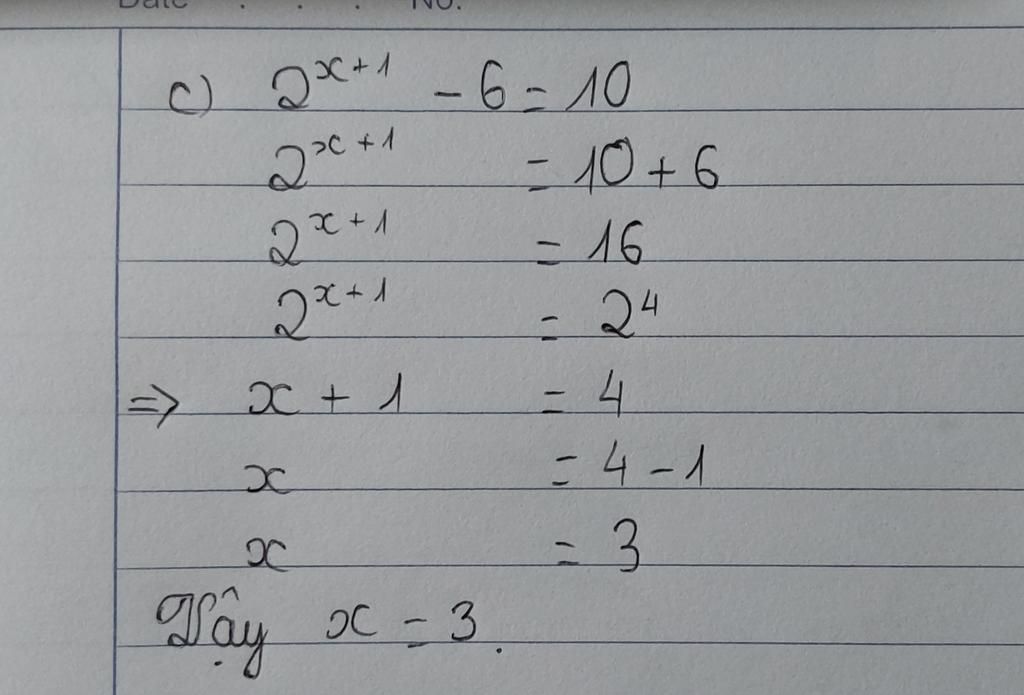 Date . . . No.
c) 2^{x+1} - 6 = 10
2^{x+1} = 10 + 6
2^{x+1} = 16
2^{x+1} = 2^4
=> x + 1 = 4
x = 4 - 1
x = 3
Vậy x = 3.